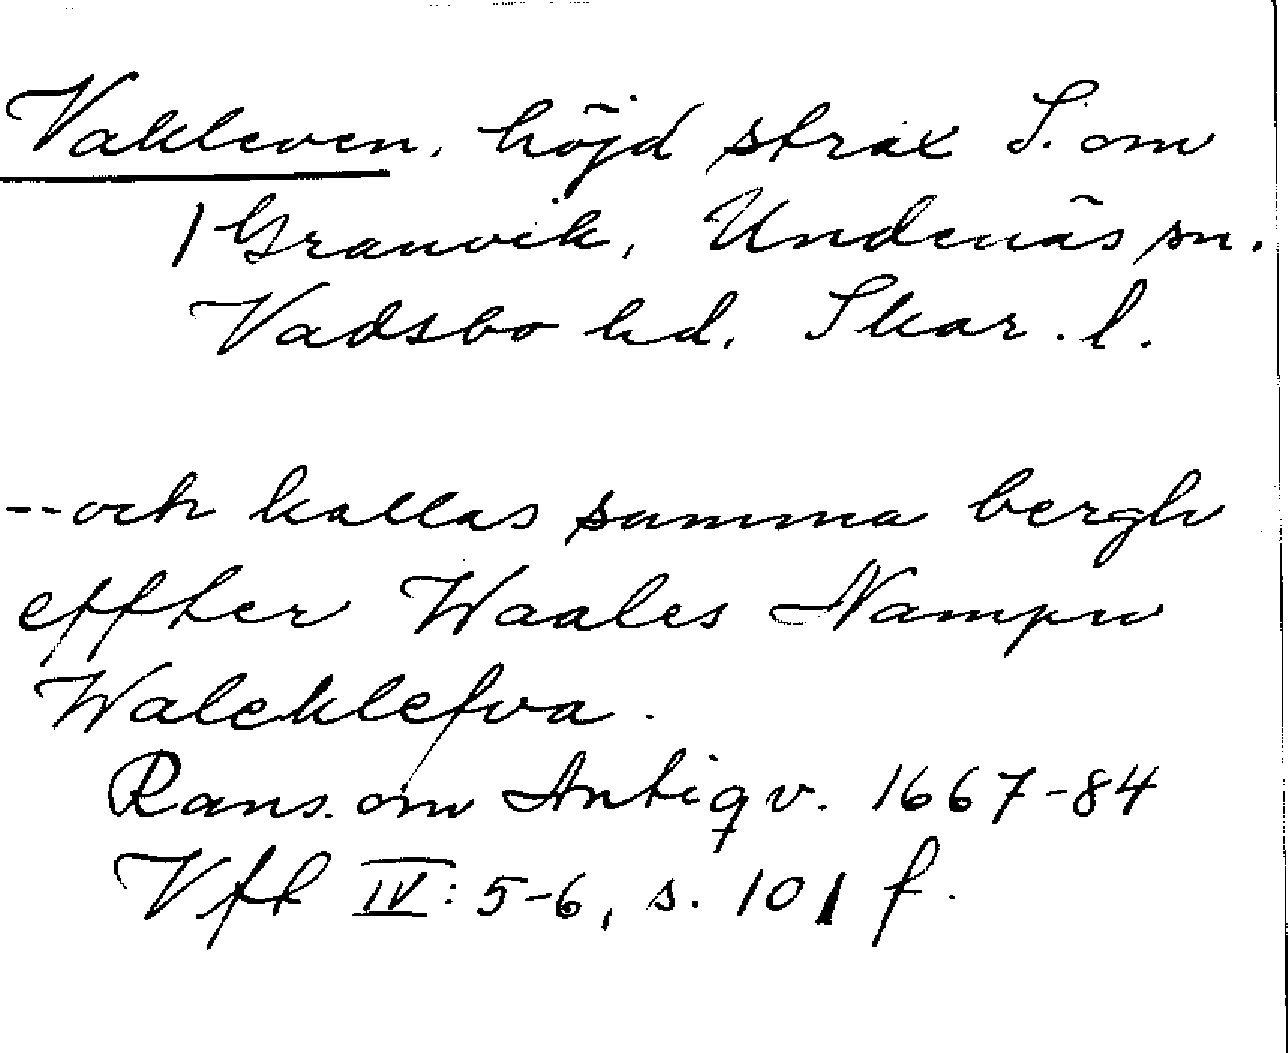 Vakleven, höjd strax S. om
/ Granvik, Undenäs sn.
Vadsbo hd. Skar. l.
-- och kallas samma bergh
effter Waales Nampn
Waleklefva.
Rans. om Antiqv. 1667-84
Vft IV: 5-6, s. 101 f.